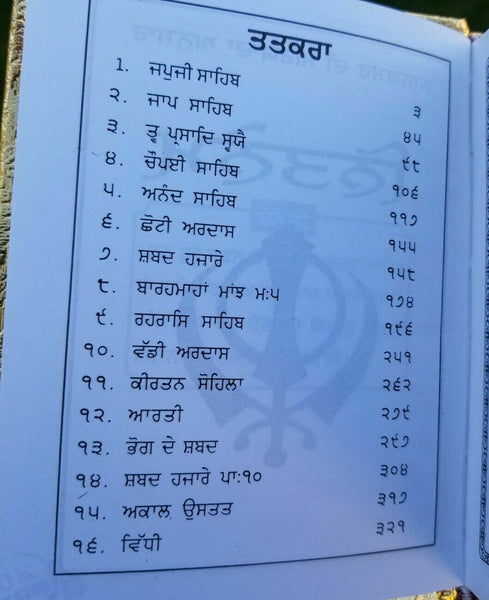 ਤਤਕਰਾ
੧. ਜਪੁਜੀ ਸਾਹਿਬ ੩
੨. ਜਾਪ ਸਾਹਿਬ ੪੫
੩. ਤ੍ਵ ਪ੍ਰਸਾਦਿ ਸ੍ਵਯੈ ੯੮
੪. ਚੌਪਈ ਸਾਹਿਬ ੧੦੬
੫. ਅਨੰਦ ਸਾਹਿਬ ੧੧੭
੬. ਛੋਟੀ ਅਰਦਾਸ ੧੫੫
੭. ਸ਼ਬਦ ਹਜਾਰੇ ੧੫੮
੮. ਬਾਰਹਮਾਹਾਂ ਮਾਂਝ ਮ:੫ ੧੭੪
੯. ਰਹਰਾਸਿ ਸਾਹਿਬ ੧੯੬
੧੦. ਵੱਡੀ ਅਰਦਾਸ ੨੫੧
੧੧. ਕੀਰਤਨ ਸੋਹਿਲਾ ੨੬੨
੧੨. ਆਰਤੀ ੨੭੯
੧੩. ਭੋਗ ਦੇ ਸ਼ਬਦ ੨੯੭
੧੪. ਸ਼ਬਦ ਹਜਾਰੇ ਪਾ:੧੦ ੩੦੪
੧੫. ਅਕਾਲ ਉਸਤਤ ੩੧੭
੧੬. ਵਿੱਧੀ ੩੨੧